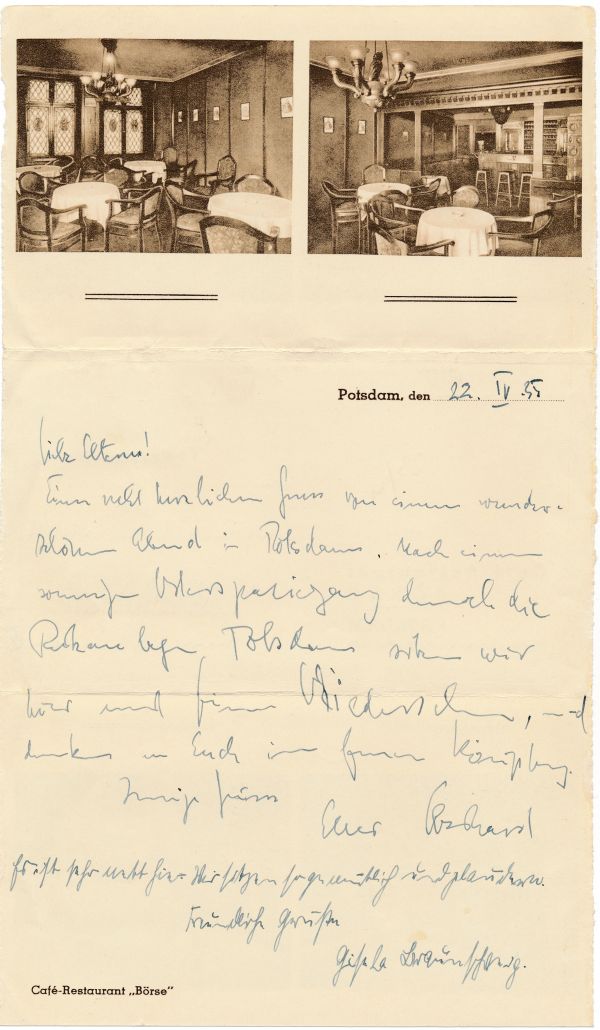 Potsdam, den 22. IV 35
Liebe Eltern!
Einen recht herzlichen Gruss von einem wunder-
schönen Abend in Potsdam. Nach einem
sonnigen Osterspaziergang durch die
Parkanlagen Potsdams sitzen wir
hier und feiern Wiedersehen, und
denken an Euch im fernen Königsberg.
Innige Grüsse
Euer Eberhard
Es ist sehr nett hier. Wir sitzen so gemütlich und plaudern.
Freundliche Grüße
Gisela Braunschweig.
Café-Restaurant „Börse“